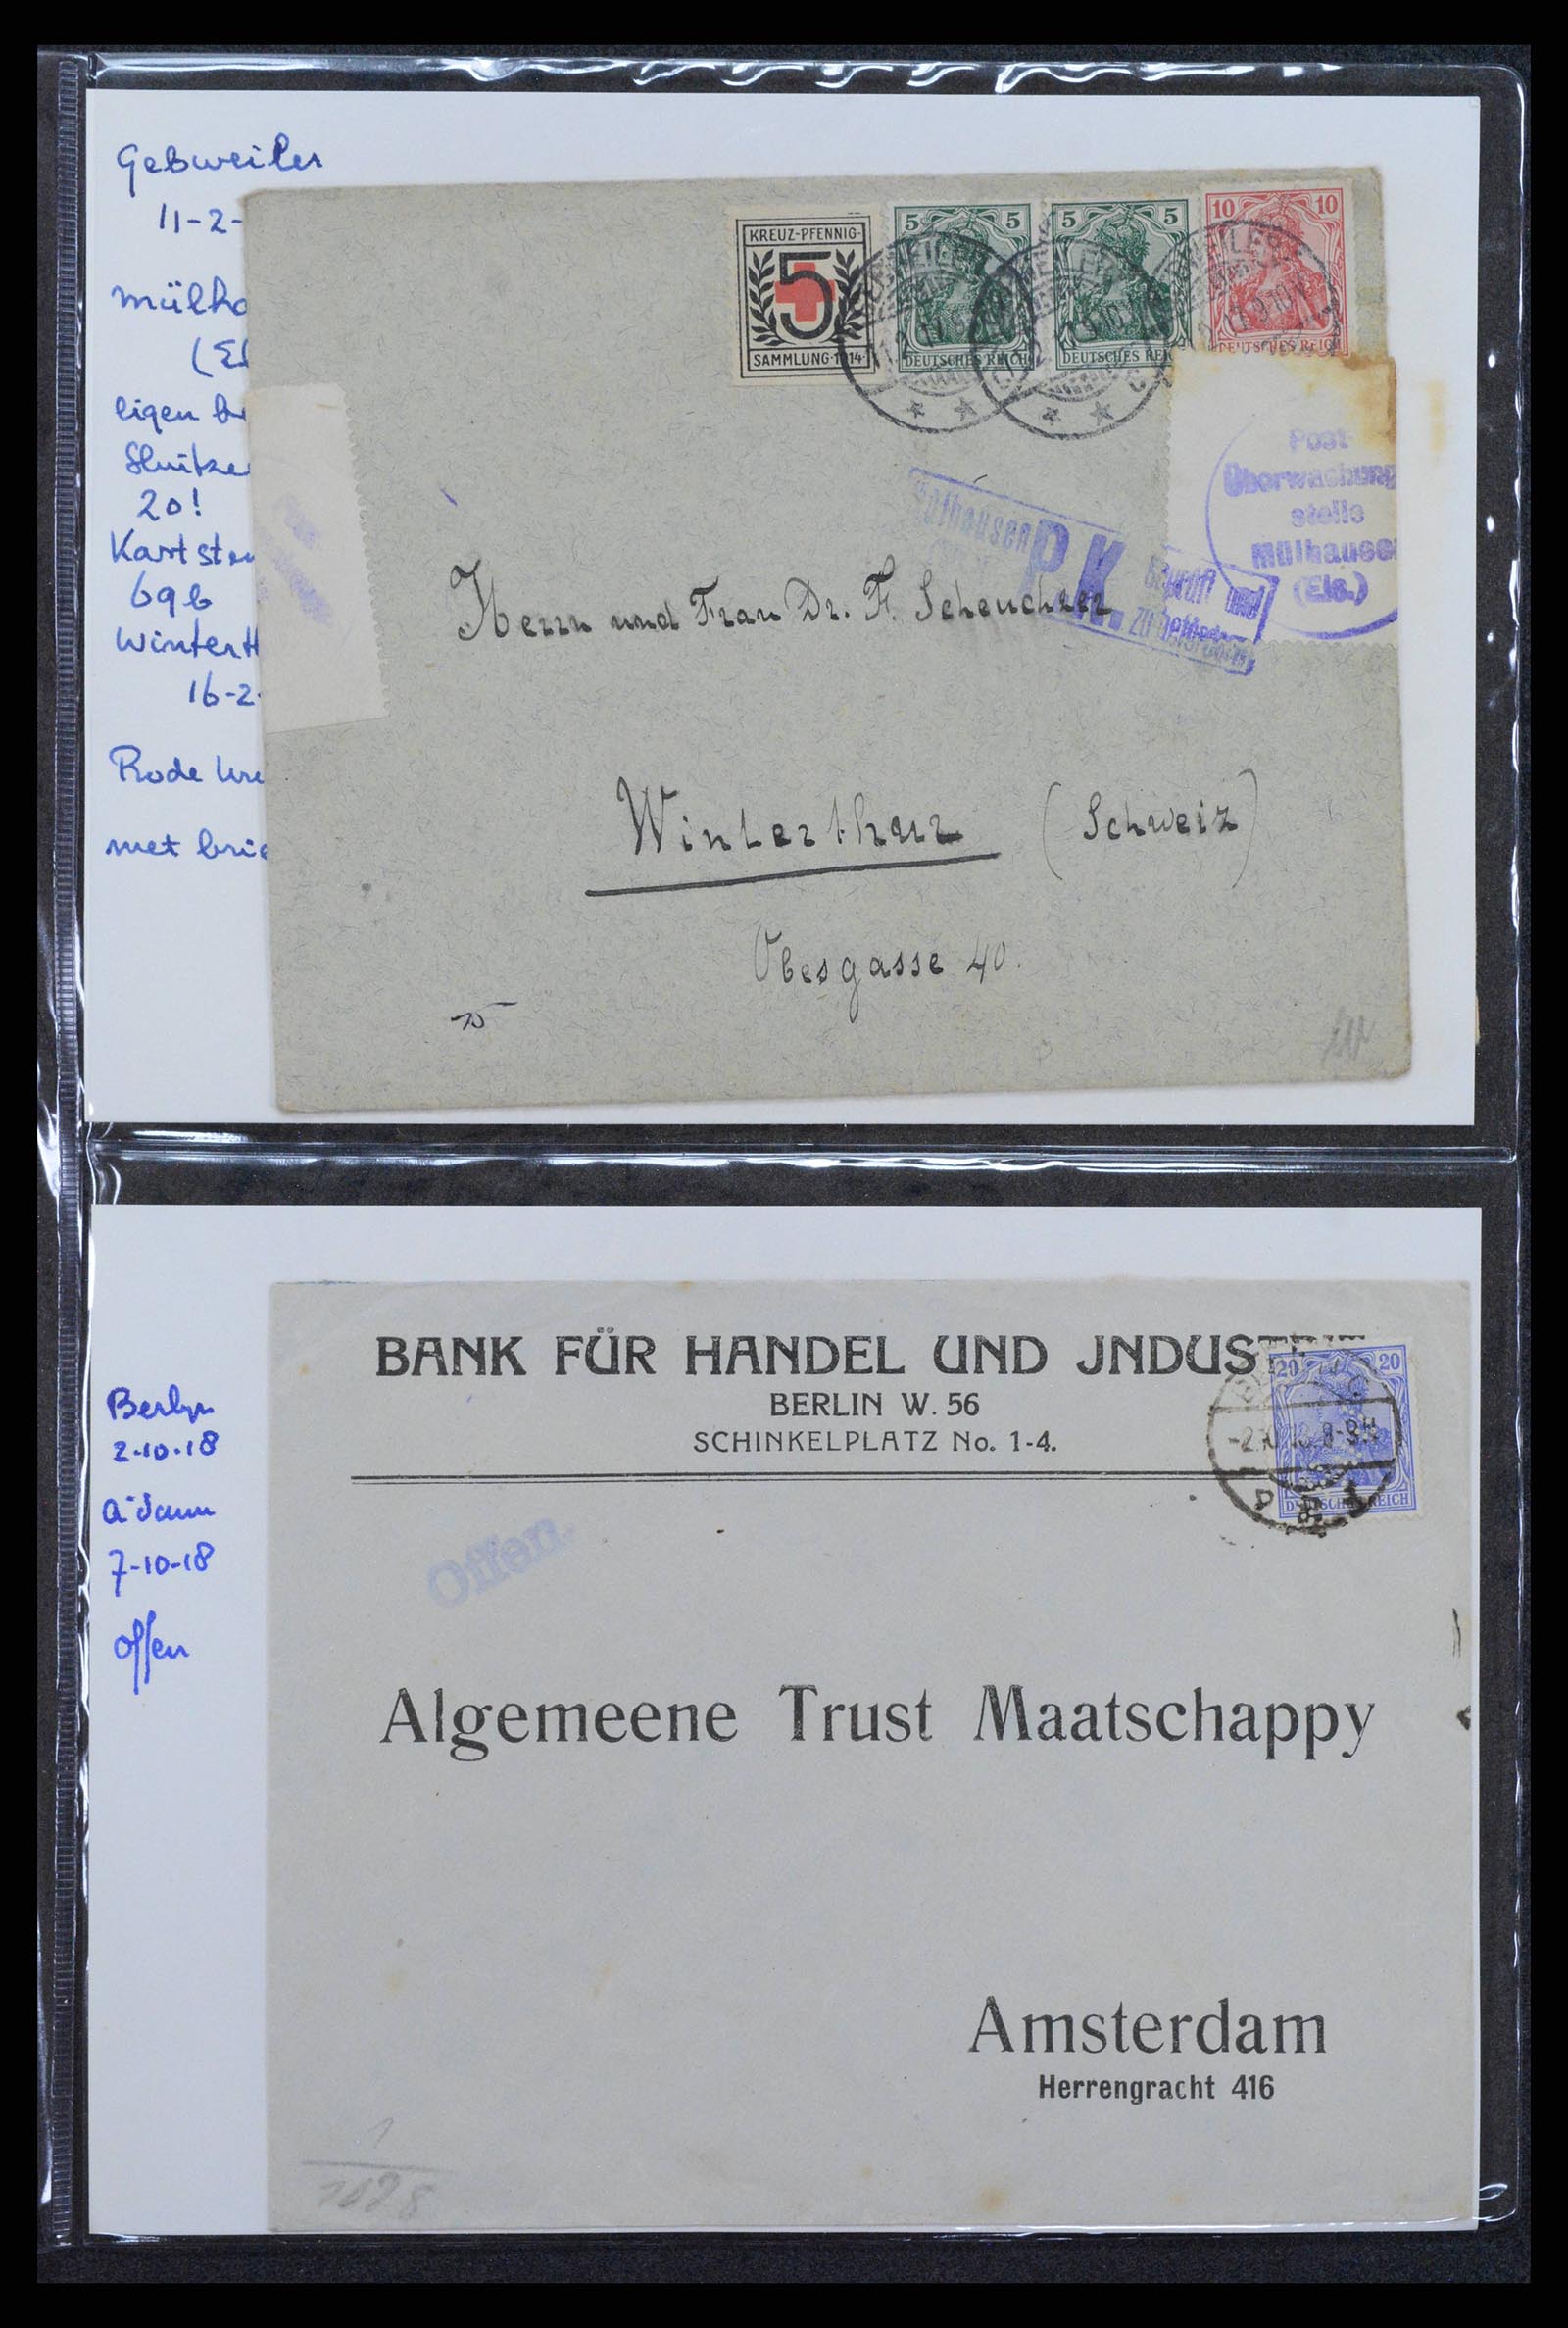 Gebweiler
11-2-
mülho
(El
eigen br
Sluitze
20!
Kart ste
69b
Wintert
16-2-
Rode kru
met brie
KREUZ-PFENNIG-
5
SAMMLUNG·1914·
5 5
DEUTSCHES REICH
5 5
DEUTSCHES REI
10 10
DEUTSCHES REICH
Post-
Überwachung
stelle
Mülhause
(Els.)
Mülhausen
P.K.
Geprüft und
zu befördern
Herrn und Frau Dr. F. Scheuchzer
Winterthur (Schweiz)
Obergasse 40.
15
Berlyn
2-10-18
A'dam
7-10-18
offen
BANK FÜR HANDEL UND JNDUSTRIE
BERLIN W. 56
SCHINKELPLATZ No. 1-4.
20 20
DEUTSCHES REICH
-2.10.18.8-9N
Offen.
Algemeene Trust Maatschappy
Amsterdam
Herrengracht 416
1
1028